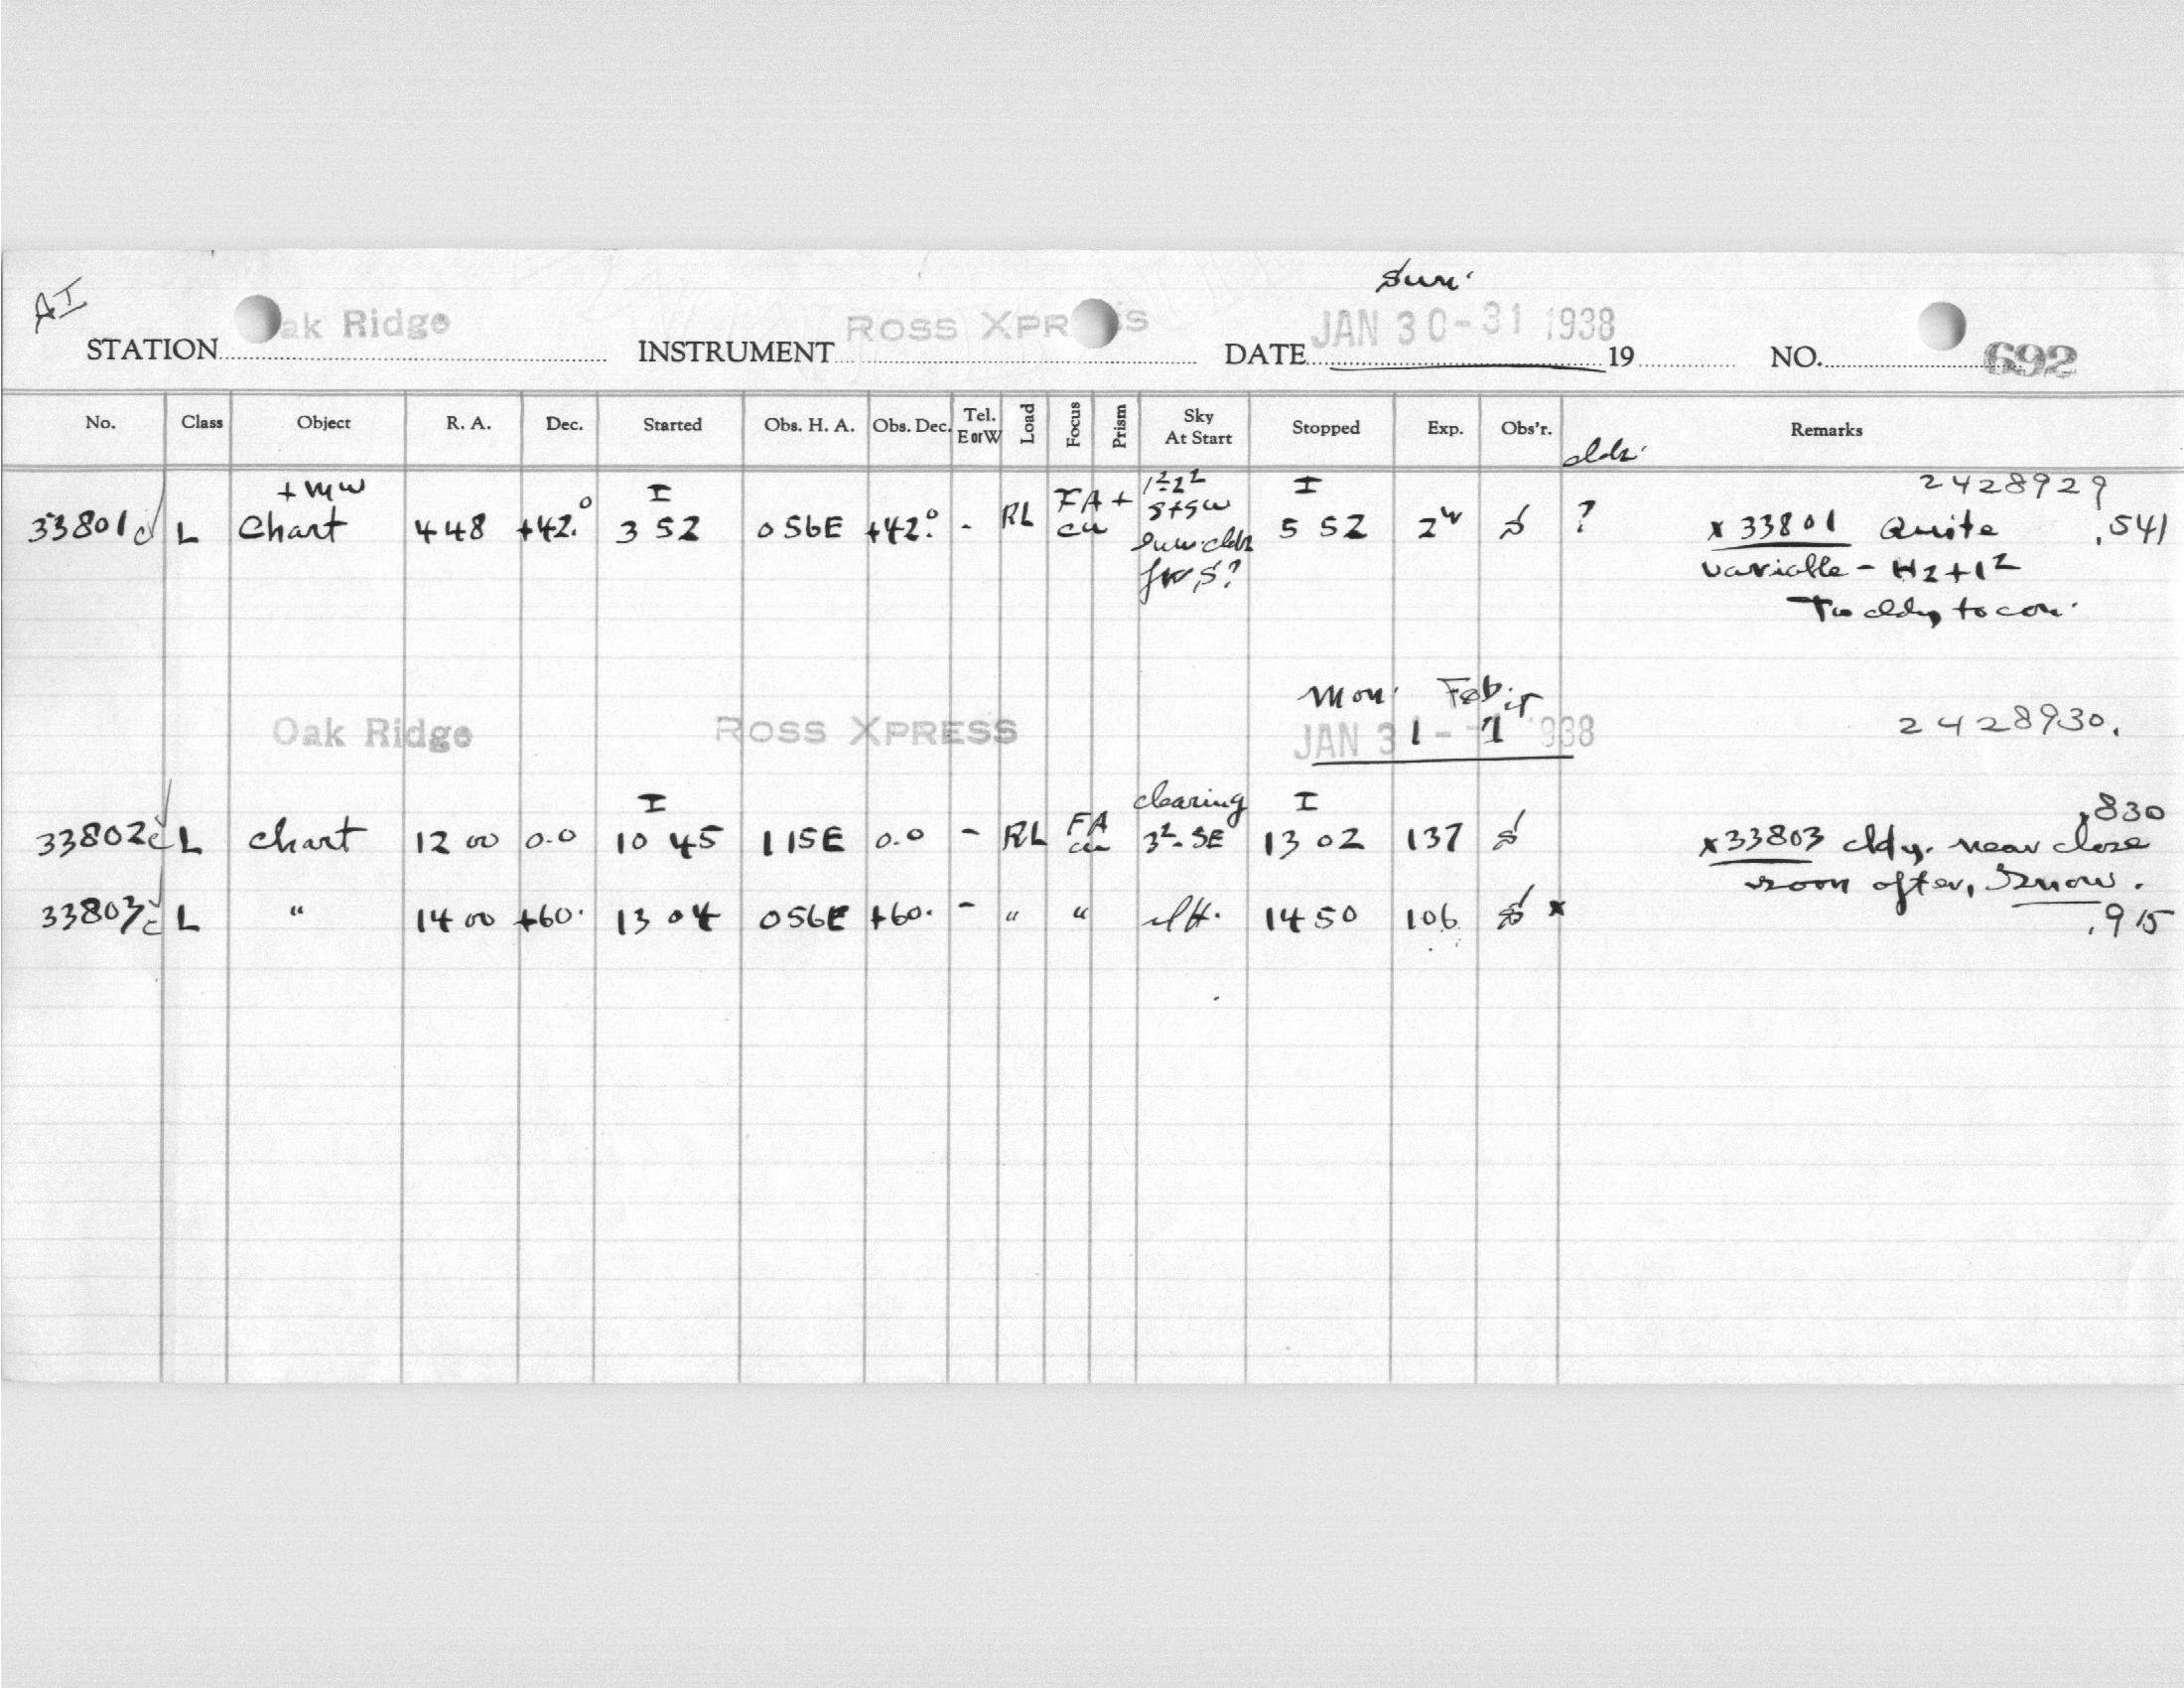 AI
Sun.
STATION Oak Ridge INSTRUMENT ROSS XPRESS DATE JAN 30-31 1938 19 NO. 692
No. Class Object R. A. Dec. Started Obs. H. A. Obs. Dec. Tel. E or W Load Focus Prism Sky At Start Stopped Exp. Obs'r. Remarks
cldr.
+ MW I I 2428929
33801 L Chart 4 48 +42.° 3 52 0 56E +42.° - RL FA + cu 5 52 2 ? x 33801 Quite .541
variable - H2+1²
Too cldy to con.
Mon. Feb.
Oak Ridge ROSS XPRESS JAN 31-1 1938 2428930.
I clearing I .830
33802 L chart 12 00 0.0 10 45 1 15E 0.0 - RL FA cu 3²-SE 13 02 137 x33803 cldy. near close
soon after, Snow.
33803 L " 14 00 +60. 13 04 0 56E +60. - " " 14 50 106 x .915